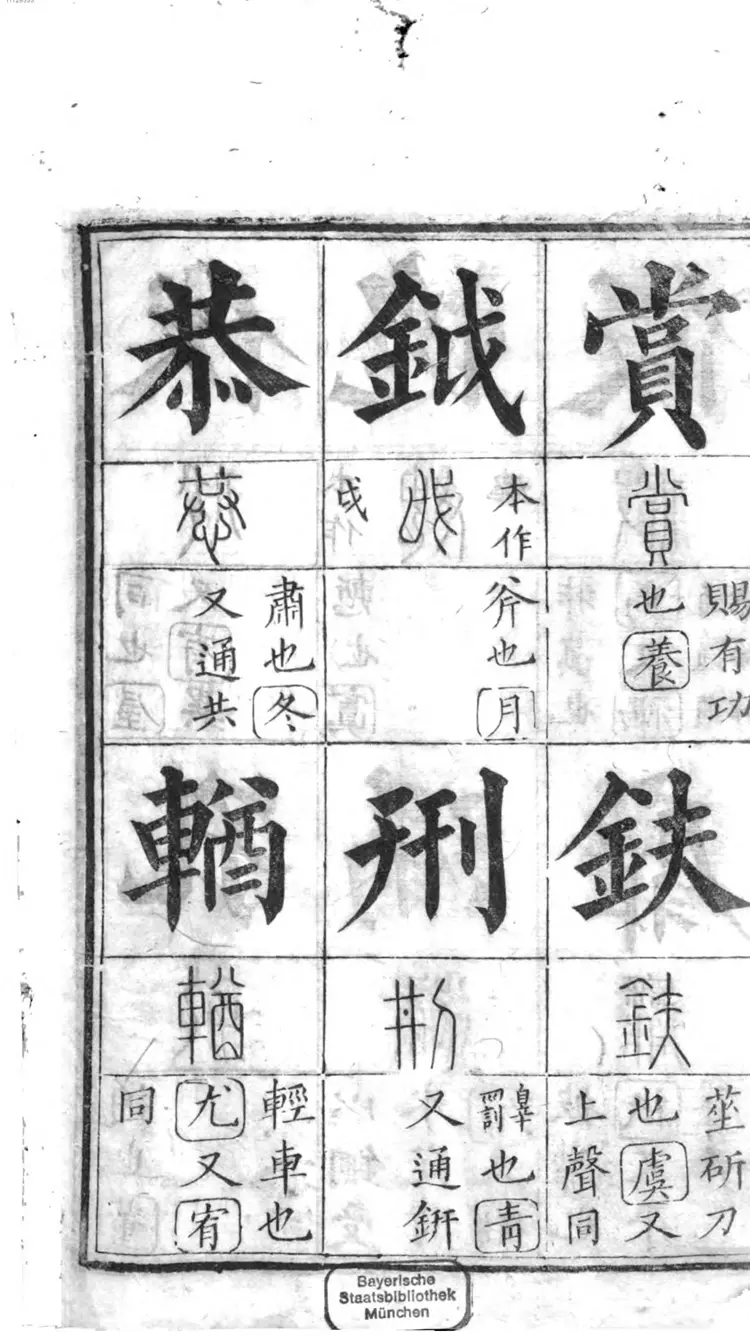 賞
賞
賜有功
也養
鈇
鈇
莝斫刀
也虞又
上聲同
鉞
本作
戉
戉
斧也月
刑
㓝
辠罰也青
又通鈃
恭
恭
肅也冬
又通共
輶
輶
輕車也
尤又宥
同
Bayerische
Staatsbibliothek
München